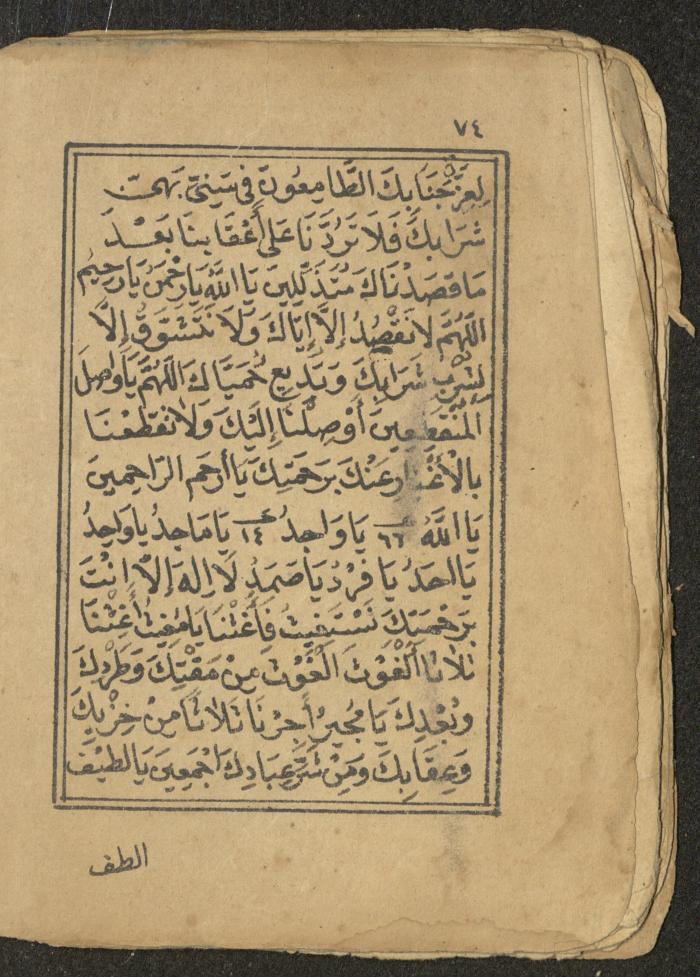 ٧٤
لِعِزِّ جَنَابِكَ الطَّامِعُونَ فِي سَنِيِّ بَهِيِّ
شَرَابِكَ فَلَا تَرُدَّنَا عَلَى أَعْقَابِنَا بَعْدَ
مَا قَصَدْنَاكَ مُتَذَلِّلِينَ يَا اَللَّهُ يَارَحْمَنُ يَارَحِيمُ
اللَّهُمَّ لَا نَقْصُدُ إِلَّا إِيَّاكَ وَلَا نَتَشَوَّقُ إِلَّا
لِشُرْبِ شَرَابِكَ وَبَدِيعِ حُمَيَّاكَ اللَّهُمَّ يَاوَاصِلَ
الْمُنْقَطِعِينَ أَوْصِلْنَا إِلَيْكَ وَلَا تَقْطَعْنَا
بِالْأَغْيَارِ عَنْكَ بِرَحْمَتِكَ يَا أَرْحَمَ الرَّاحِمِينَ
يَا اَللَّهُ ٦٦ يَا وَاجِدُ ١٤ يَا مَاجِدُ يَا وَاحِدُ
يَا اَحَدُ يَا فَرْدُ يَا صَمَدُ لَا اِلَهَ إِلَّا اَنْتَ
بِرَحْمَتِكَ نَسْتَغِيثُ فَأَغِثْنَا يَا مُغِيثُ أَغِثْنَا
ثَلَاثًا اَلْغَوْثَ الْغَوْثَ مِنْ مَقْتِكَ وَطَرْدِكَ
وَبُعْدِكَ يَا مُجِيرُ أَجِرْنَا ثَلَاثًا مِنْ خِزْيِكَ
وَعِقَابِكَ وَمِنْ شَرِّ عِبَادِكَ اَجْمَعِينَ يَا لَطِيْفُ
الطف